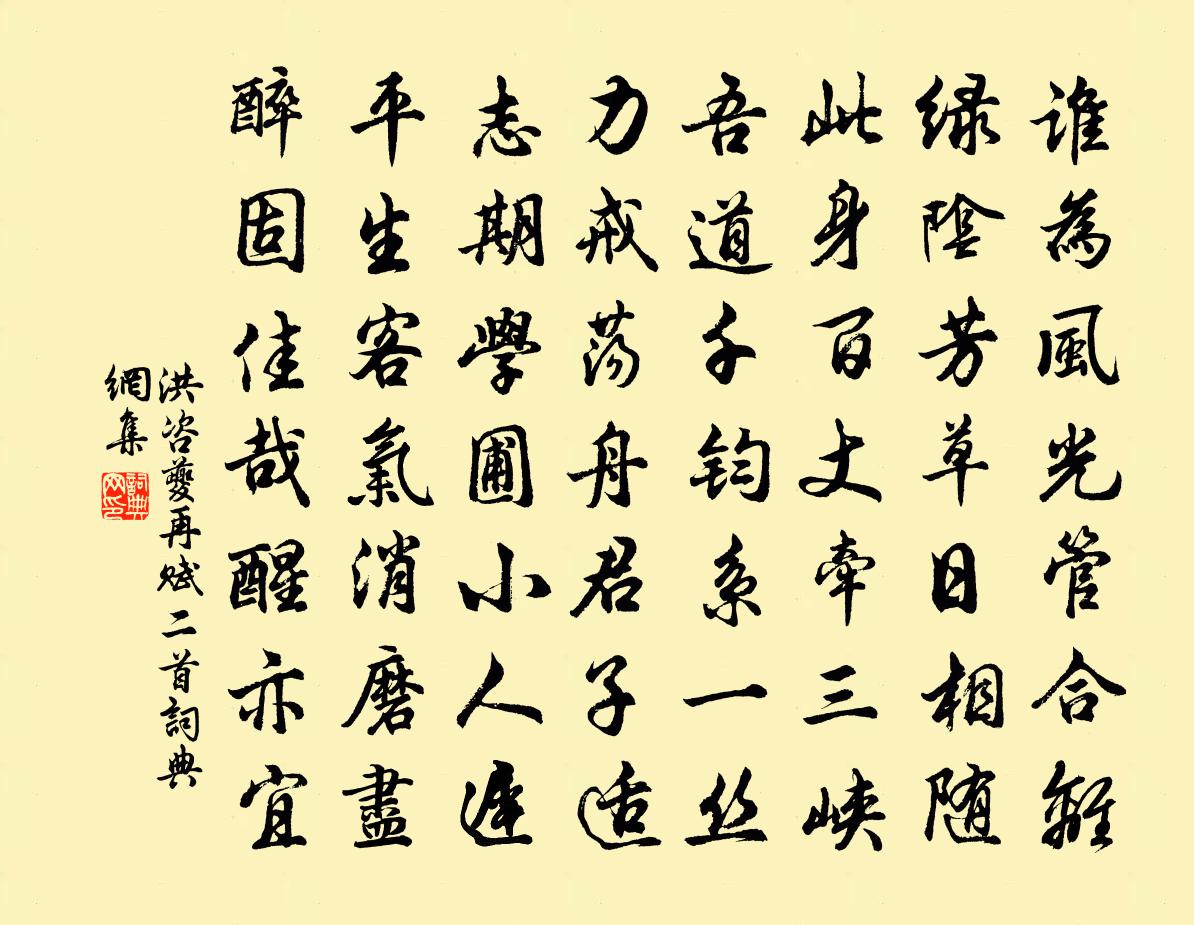 誰為風光管合離
緑陰芳草日相随
此身百丈牽三峽
吾道千鈞系一丝
力戒蕩舟君子适
志期學圃小人遲
平生客氣消磨盡
醉固佳哉醒亦宜
洪咨夔再赋二首詞典
網集
詞典
网印